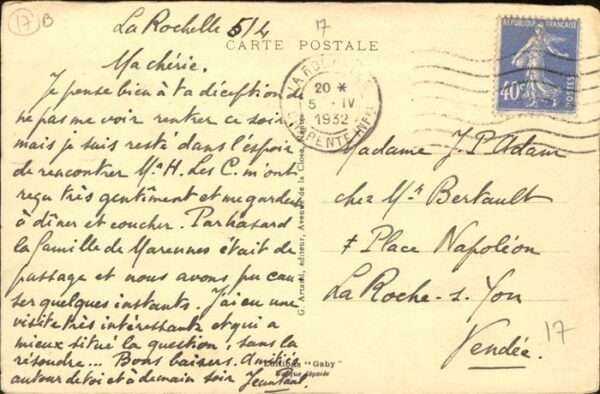 17 B
La Rochelle 5/4
17
CARTE POSTALE
Ma chérie,
Je pense bien à ta déception de
ne pas me voir rentrer ce soir
mais je suis resté dans l'espoir
de rencontrer Mr H. Les C. m'ont
reçu très gentiment et me gardent
à dîner et coucher. Par hasard
la famille de Marennes était de
passage et nous avons pu cau
ser quelques instants. J'ai eu une
visite très intéressante et qui a
mieux situé la question, sans la
résoudre... Bons baisers. Amitiés
autour de toi et à demain soir Jean Paul
LA ROCHELLE
20 *
5 - IV
1932
CHARENTE INFRE
REPUBLIQUE FRANÇAISE
40c
POSTES
G. Artaud, éditeur, Avenue de la Close,
Madame J. P. Adam
chez Mr Bertault
7 Place Napoléon
La Roche-s-Yon
Vendée.
17
Editions "Gaby"
Marque déposée